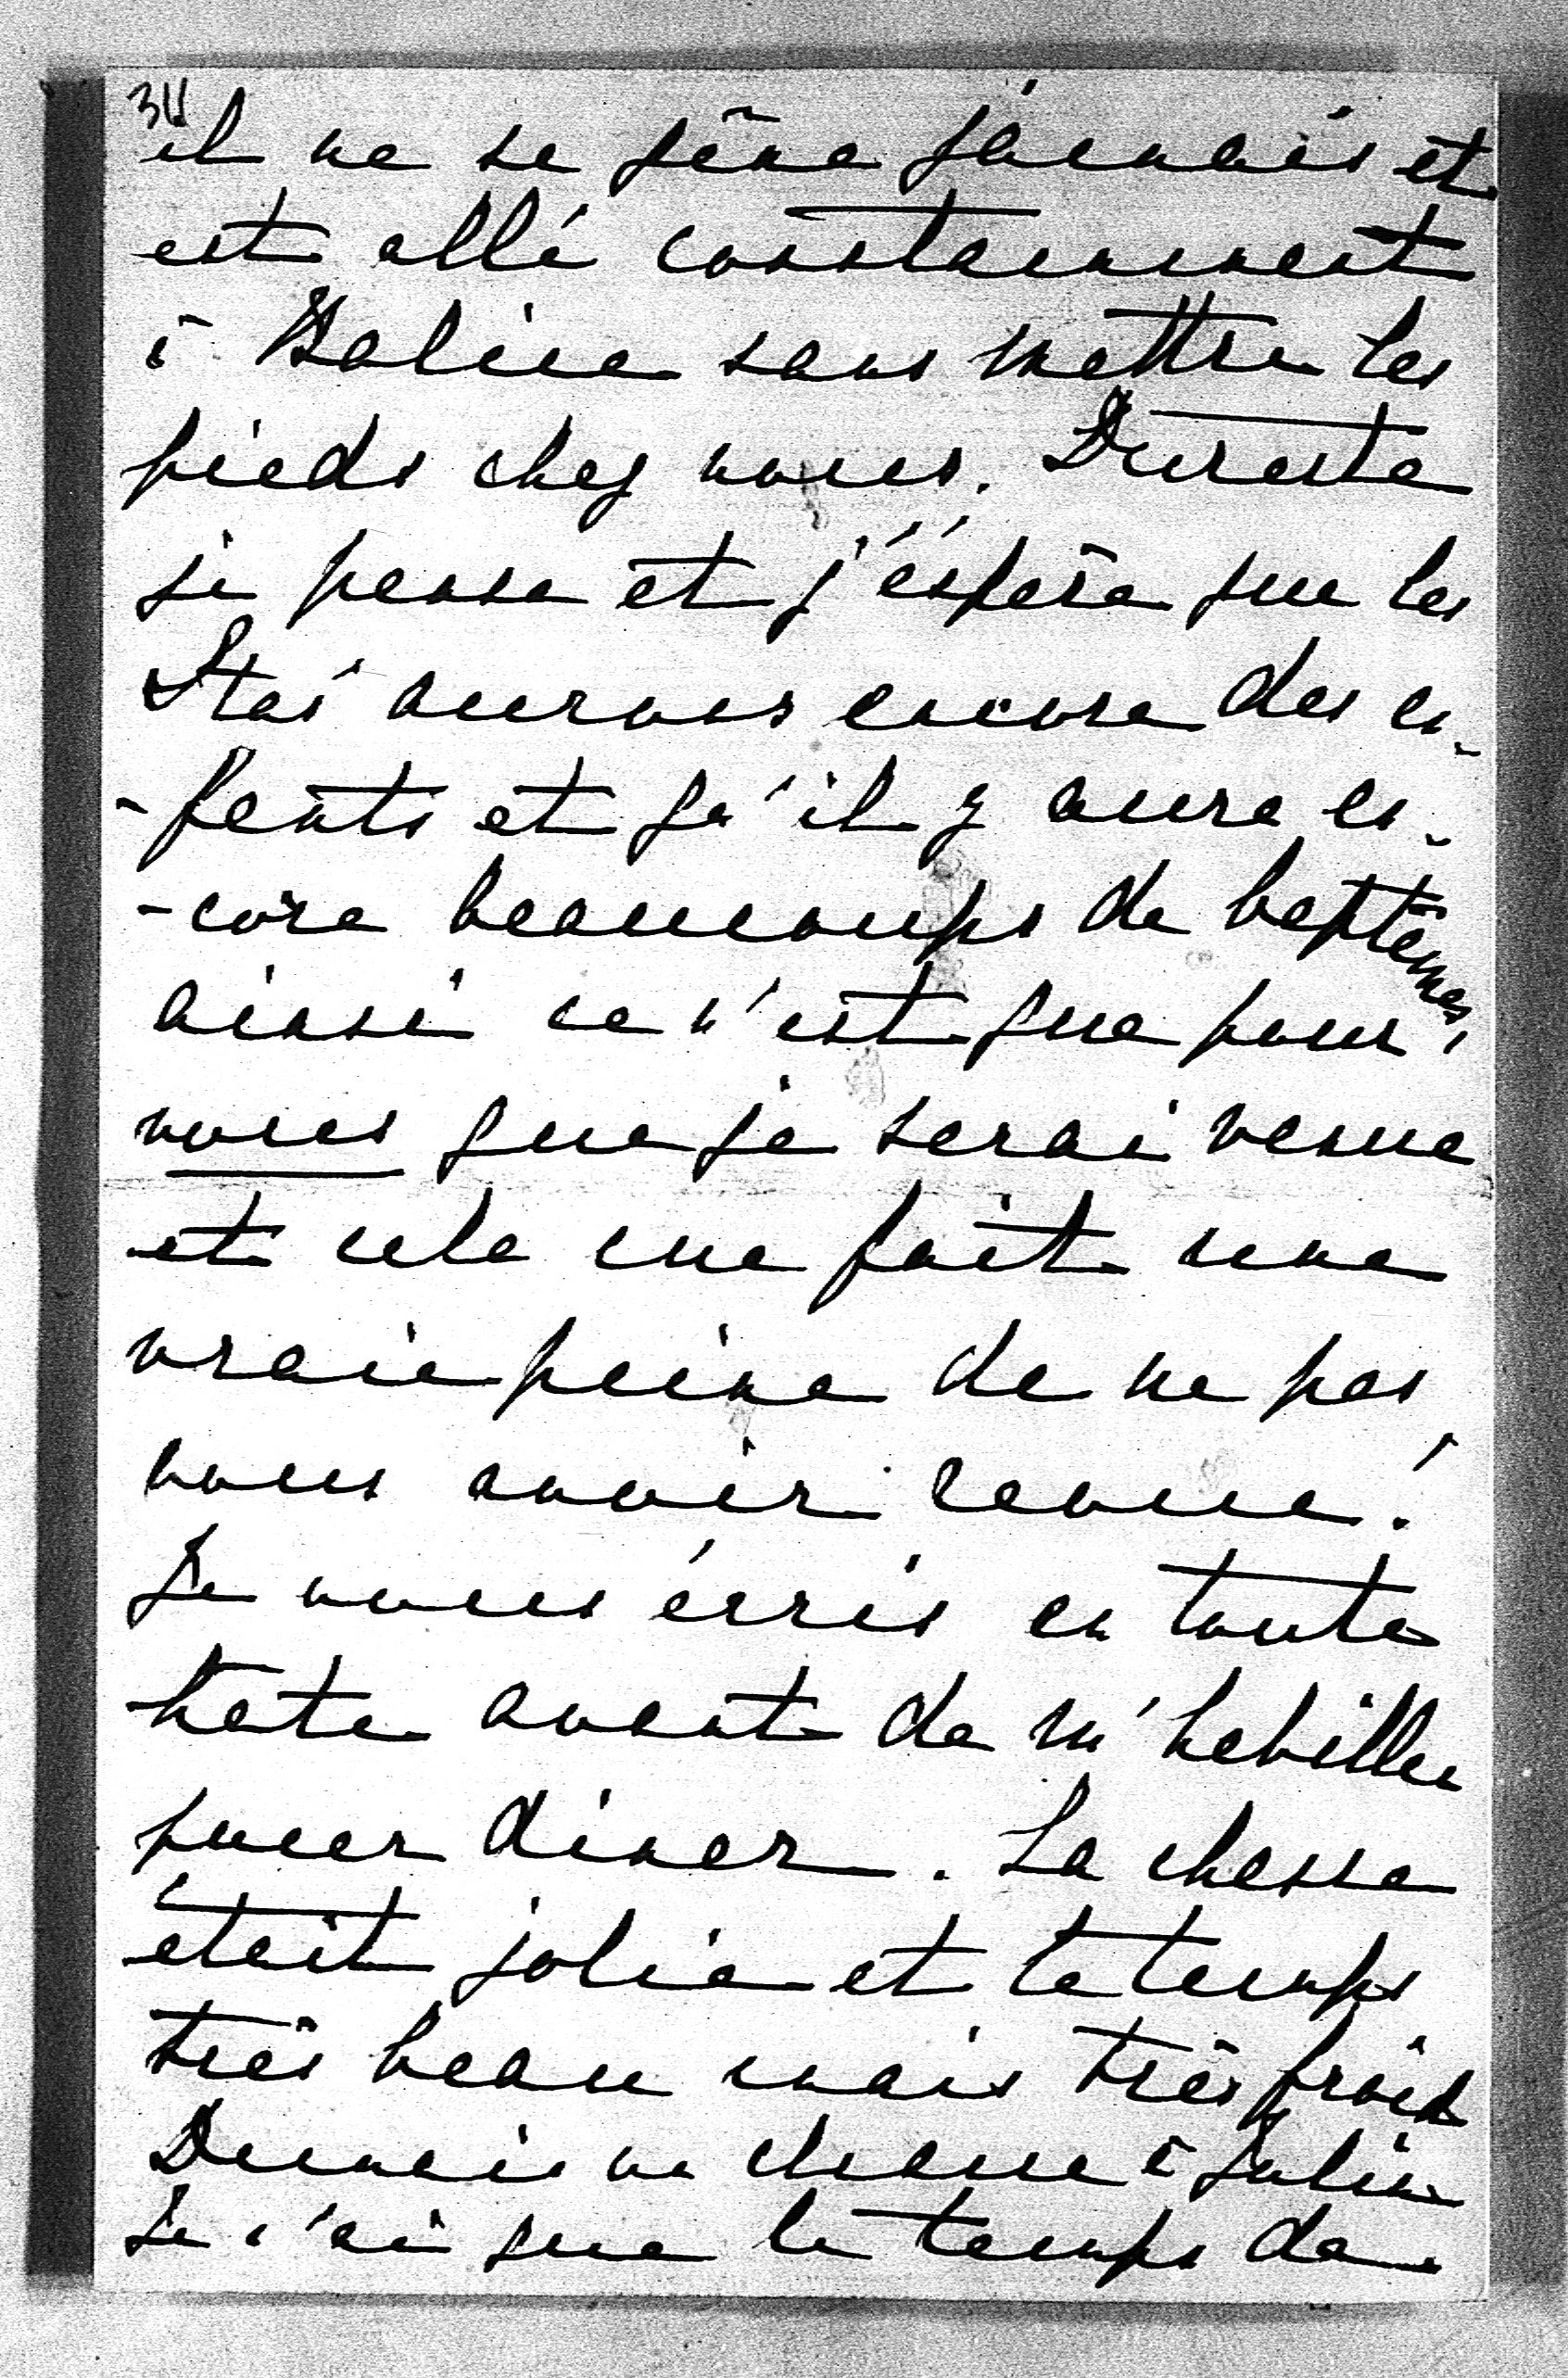 34
il ne se gêne jamais et
est allé constamment
à Galicea sans mettre les
pieds chez nous. Dureste
je pense et j'éspère que les
Stai aurons encore des en-
-fants et qu'il y aura en-
-core beaucoups de baptêmes,
ainsi ce n'est que pour
vous que je serai venue
et cela me fait une
vraie peine de ne pas
vous avoir revue!
Je vous écris en toute
hate avant de m'habiller
pour diner. La chasse
était jolie et le temps
très beau mais très froid
Demain on chasse à
Je n'ai que le temps de